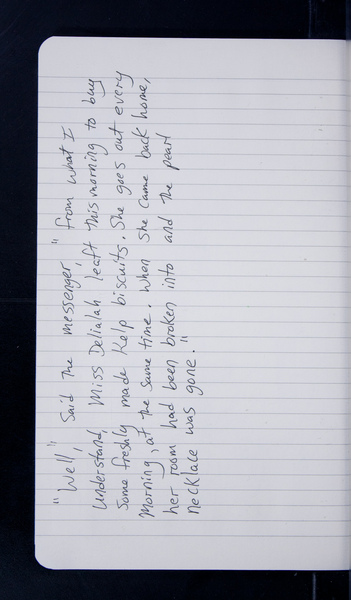 "Well," Said the messenger, "from what I
understand, Miss Delialah leaft this morning to buy
Some freshly made Kelp biscuits. She goes out every
Morning, at the same time. When she came back home,
her room had been broken into and the pearl
necklace was gone."